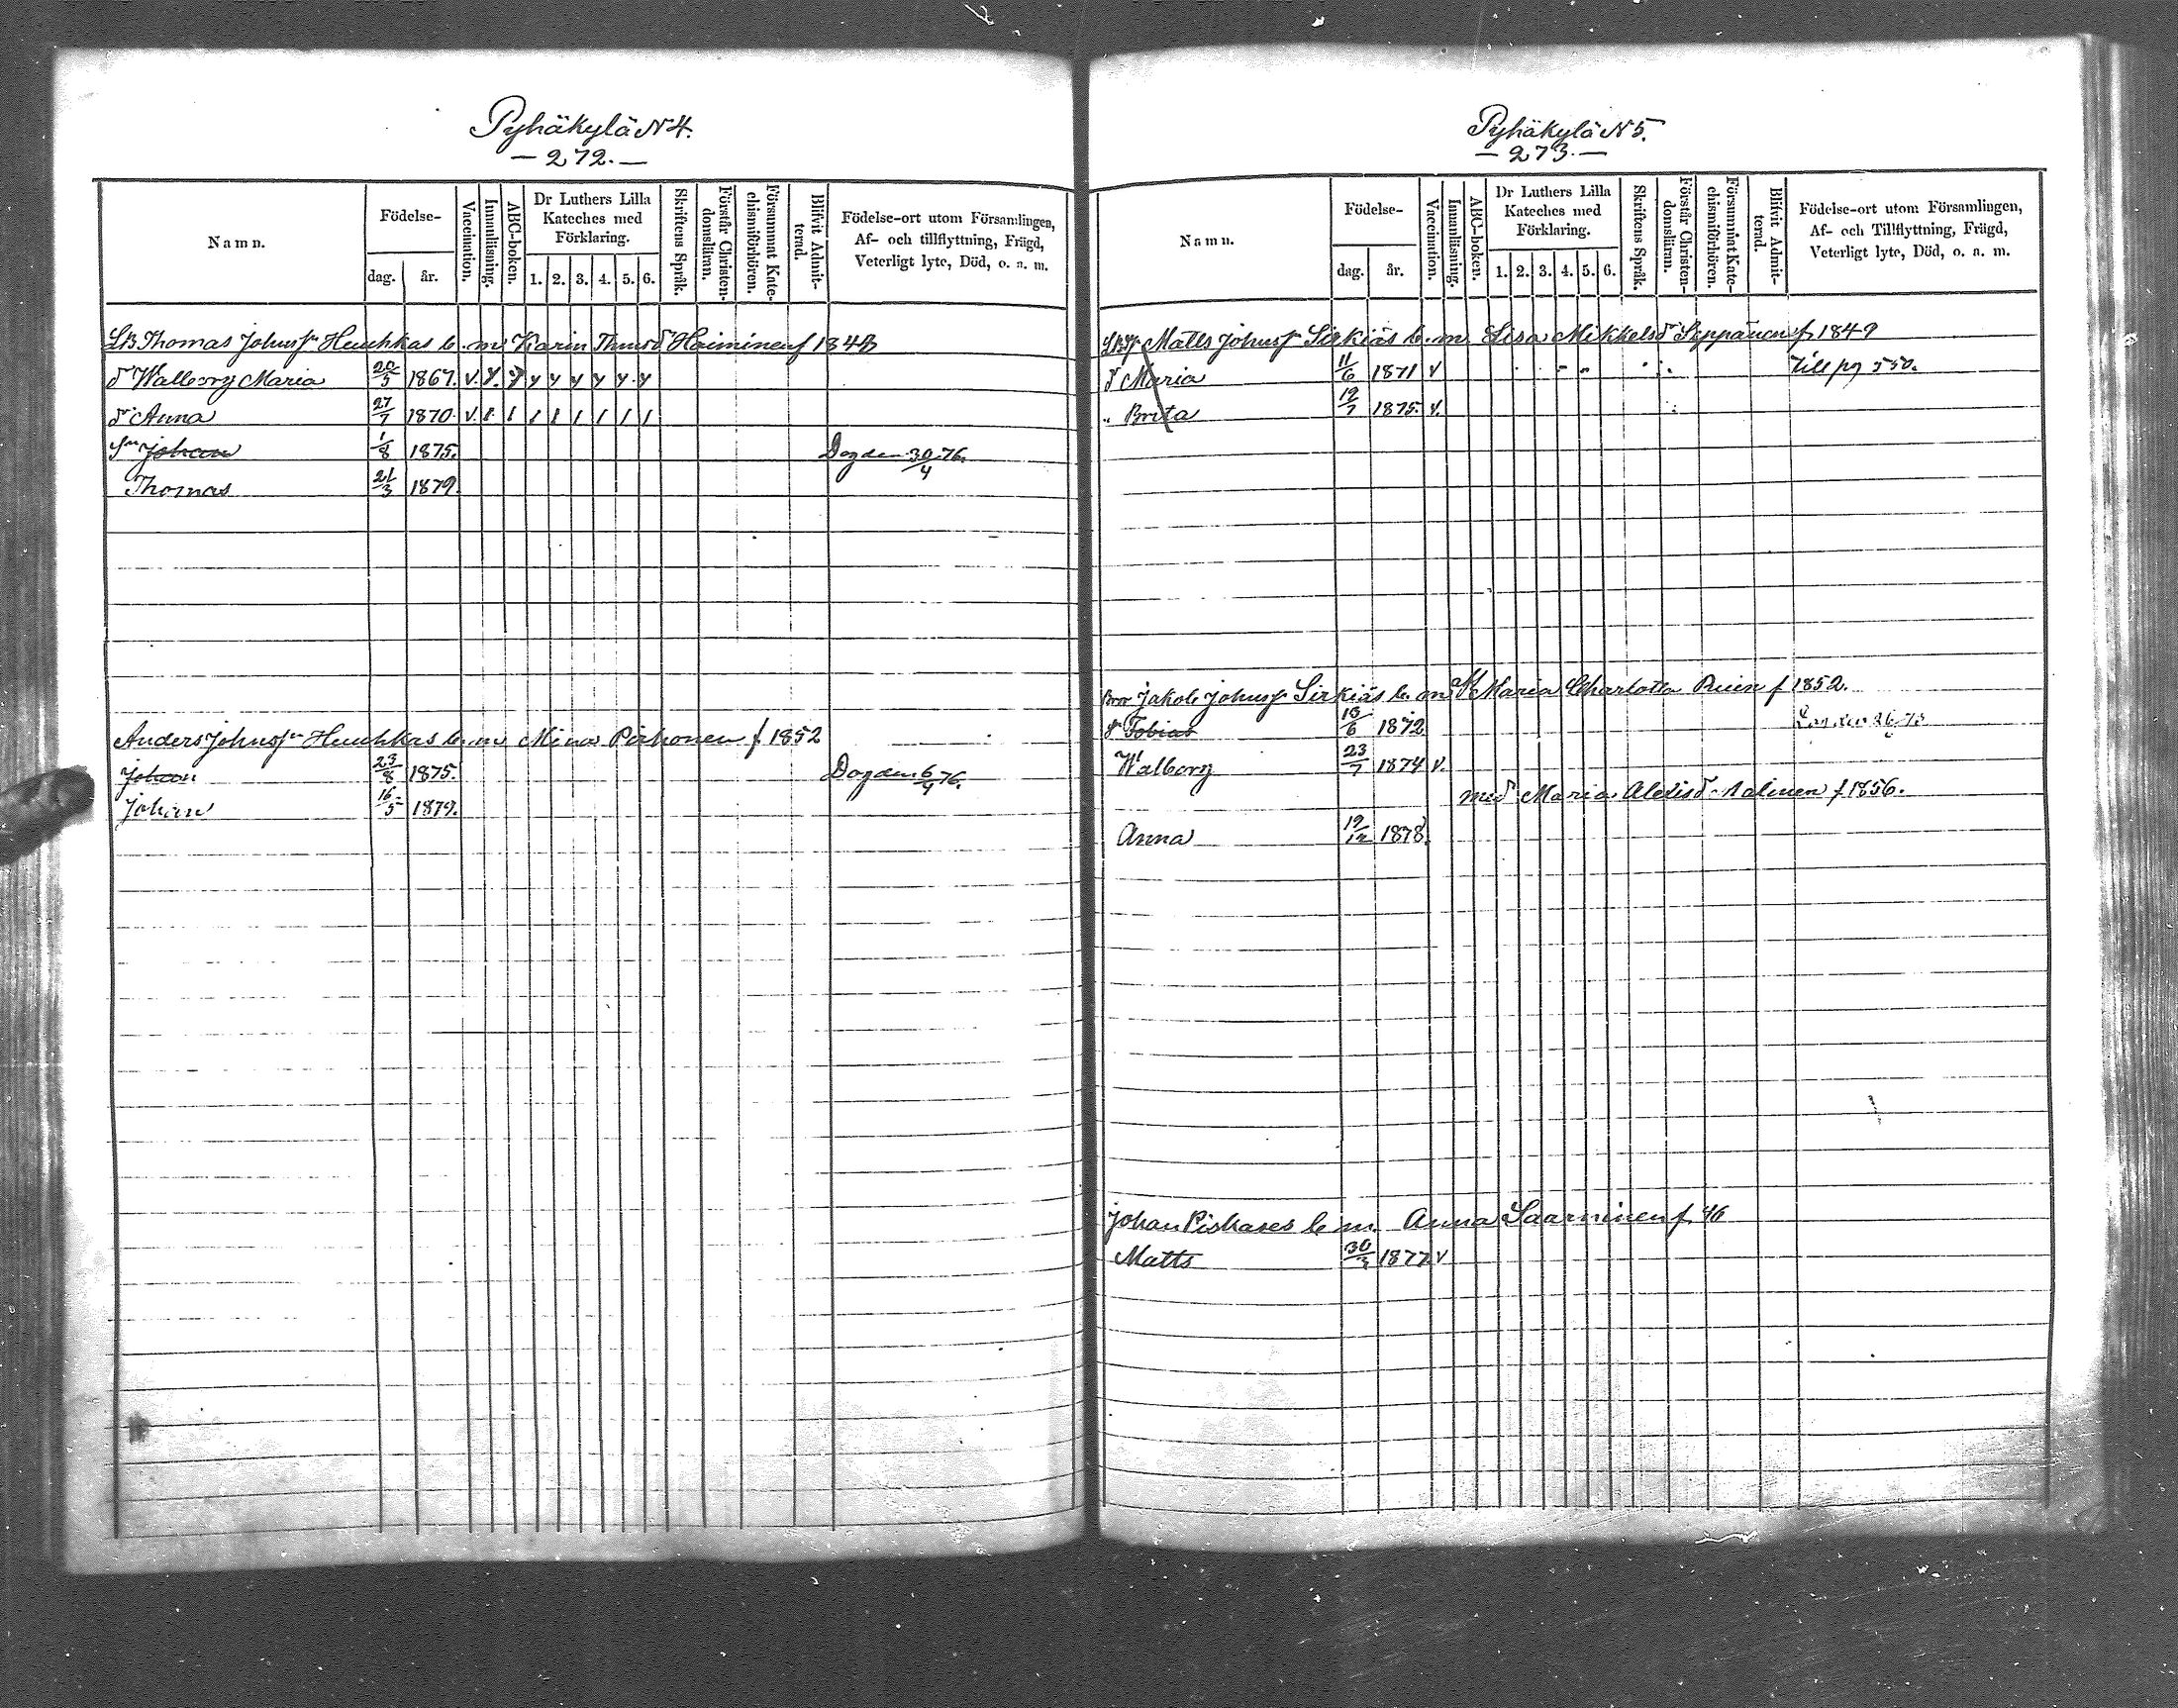 Pyhäkylä N 4.
— 272. —
Namn.
Födelse-
dag. år.
Vaccination.
Innanläsning.
ABC-boken.
Dr Luthers Lilla
Kateches med
Förklaring.
1. 2. 3. 4. 5. 6.
Skriftens Språk.
Förstår Christen-
domsläran.
Försummat Kate-
chismiförhören.
Blifvit Admit-
terad.
Födelse-ort utom Församlingen,
Af- och tillflyttning, Frägd,
Veterligt lyte, Död, o. a. m.
Thomas Johns sn b. m. Karin Heiminen f 1848
d Walborg Maria 20/5 1867. v. y. y y y y y y y
d Anna 27/7 1870. v. / / / / / / / /
Sn Johan 1/8 1875. Dog den 30/4 76.
Thomas 21/3 1879.
Anders Johns sn b. m. Mina Pirhonen f 1852
Johan 23/8 1875. Dog den 6/4 76.
Johan 16/5 1879.
Pyhäkylä N 5.
— 273. —
Namn.
Födelse-
dag. år.
Vaccination.
Innanläsning.
ABC-boken.
Dr Luthers Lilla
Kateches med
Förklaring.
1. 2. 3. 4. 5. 6.
Skriftens Språk.
Förstår Christen-
domsläran.
Försummat Kate-
chismiförhören.
Blifvit Admit-
terad.
Födelse-ort utom Församlingen,
Af- och Tillflyttning, Frägd,
Veterligt lyte, Död, o. a. m.
Matts Johns sn Sirkiäs b. m. Lisa Mikkelsd Seppänen f. 1849
d Maria 11/6 1871 v Till pg 550.
" Brita 19/7 1875. v.
Bror Jakob Johns sn Sirkiäs b. m. Maria Charlotta f 1852.
Sn Tobias 1872
Walborg 23/7 1874 v.
med Maria Alexisd f 1856.
Anna 19/12 1878.
Johan b. m. Anna Saarninen f. 46
Matts 30/3 1877. v